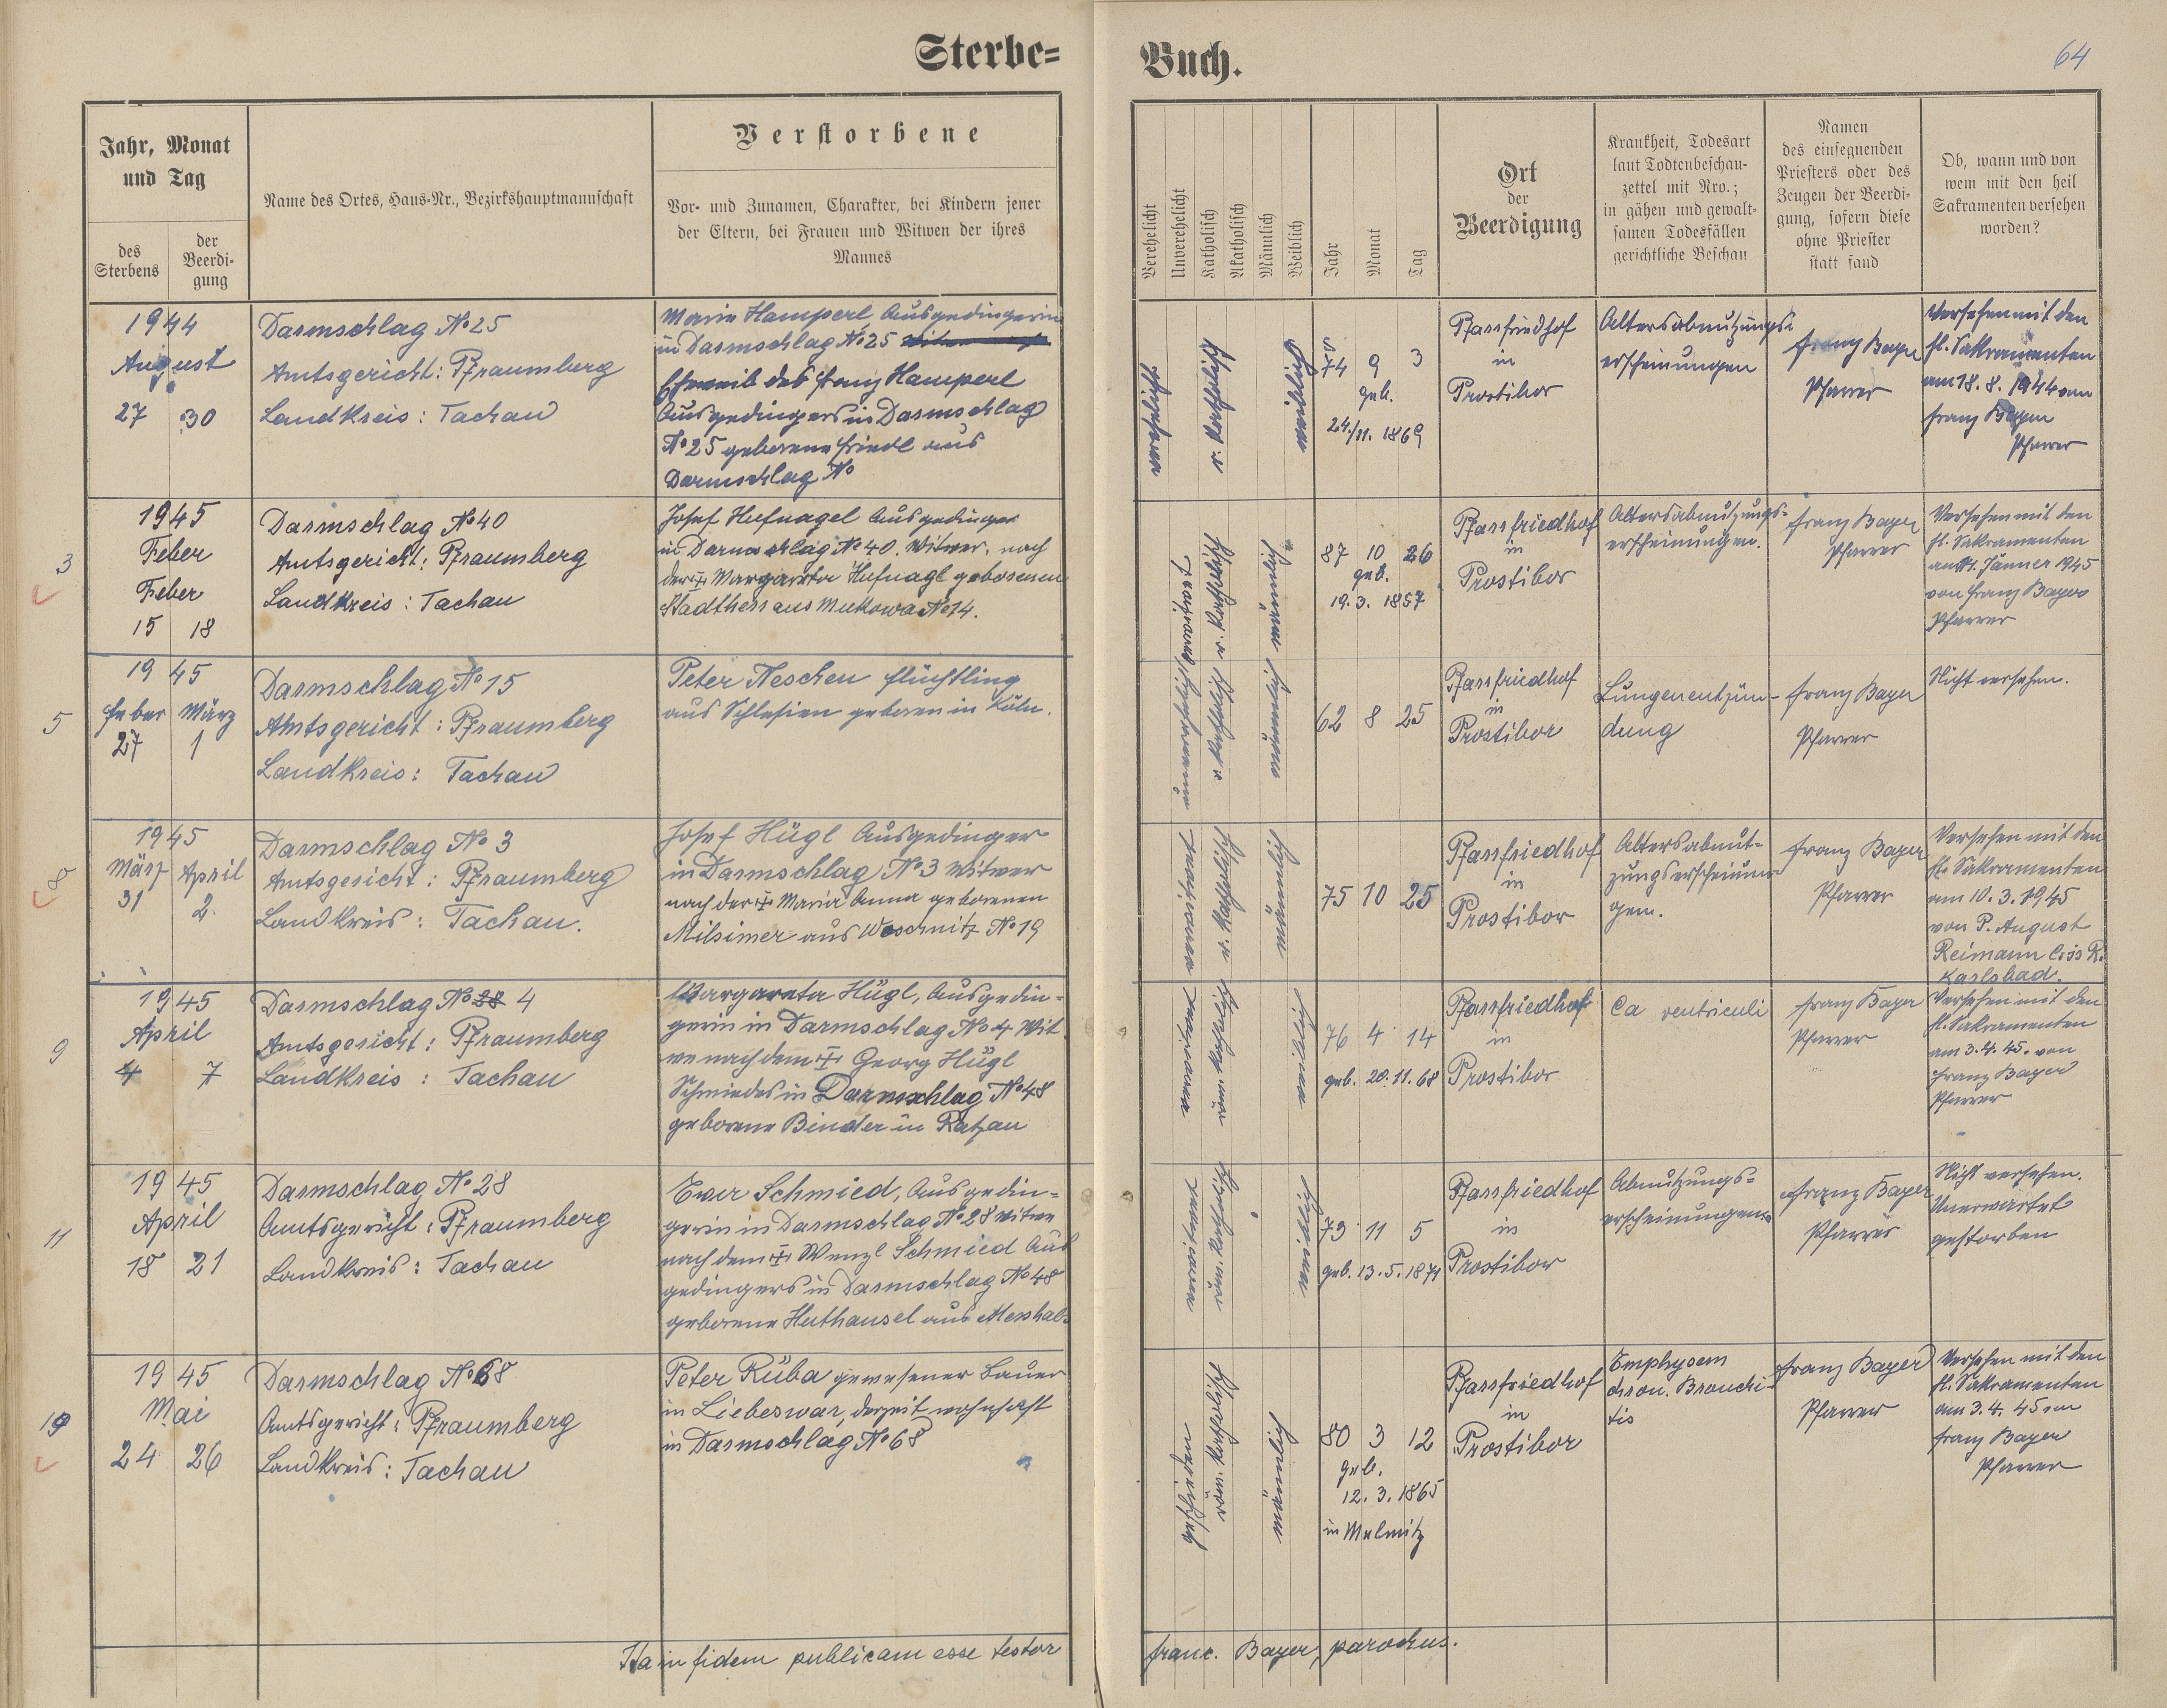 Sterbe=
Buch.
64
Jahr, Monat
und Tag
des
Sterbens
der
Beerdi-
gung
Name des Ortes, Haus-Nr., Bezirkshauptmannschaft
Verstorbene
Vor- und Zunamen, Charakter, bei Kindern jener
der Eltern, bei Frauen und Witwen der ihres
Mannes
Verehelicht
Unverehelicht
Katholisch
Akatholisch
Männlich
Weiblich
Jahr
Monat
Tag
Ort
der
Beerdigung
Krankheit, Todesart
laut Todtenbeschau-
zettel mit Nro.;
in gähen und gewalt-
samen Todesfällen
gerichtliche Beschau
Namen
des einsegnenden
Priesters oder des
Zeugen der Beerdi-
gung, sofern diese
ohne Priester
statt fand
Ob, wann und von
wem mit den heil
Sakramenten versehen
worden?
1944
August
27 30
Darmschlag No 25
Amtsgericht: Pfraumberg
Landkreis: Tachau
Marie Hamperl Ausgedingerin
in Darmschlag No 25
Eheweib des Franz Hamperl
Ausgedingers in Darmschlag
No 25 geborene Friedl aus
Darmschlag No
verehelicht
r. katholisch
weiblich
74 9 3
geb.
24./11. 1869
Pfarrfriedhof
in
Prostibor
Altersabnutzungs-
erscheinungen
Franz Bayer
Pfarrer
Versehen mit den
hl. Sakramenten
am 18. 8. 1944 von
Franz Bayer
Pfarrer
3
1945
Feber
Feber
15 18
Darmschlag No 40
Amtsgericht: Pfraumberg
Landkreis: Tachau
Josef Hufnagel Ausgedinger
in Darmschlag No 40. Witwer. nach
der Margareta Hufnagl geborenen
Stadtherr aus Mukowa No 14.
verwitwet
r. katholisch
männlich
87 10 26
geb.
19. 3. 1857
Pfarrfriedhof
in
Prostibor
Altersabnutzungs-
erscheinungen.
Franz Bayer
Pfarrer
Versehen mit den
hl. Sakramenten
Jänner 1945
von Franz Bayer
Pfarrer
5
1945
Feber März
27 1
Darmschlag No 15
Amtsgericht: Pfraumberg
Landkreis: Tachau
Peter Neschen Flüchtling
aus Schlesien geboren in Köln.
unverehelicht
r. katholisch
männlich
62 8 25
Pfarrfriedhof
in
Prostibor
Lungenentzün-
dung
Franz Bayer
Pfarrer
Nicht versehen.
8
1945
März April
31 2.
Darmschlag No 3
Amtsgericht: Pfraumberg
Landkreis: Tachau.
Josef Hügl Ausgedinger
in Darmschlag No 3 Witwer
nach der Maria Anna geborenen
Milsimer aus Woschnitz No 19
verwitwet
r. katholisch
männlich
75 10 25
Pfarrfriedhof
in
Prostibor
Altersabnut-
zungserscheinun-
gen.
Franz Bayer
Pfarrer
Versehen mit den
hl. Sakramenten
am 10. 3. 1945
von P. August
Reimann C.ss R.
Karlsbad.
9
1945
April
4 7
Darmschlag No 28 4
Amtsgericht: Pfraumberg
Landkreis: Tachau
Margareta Hügl, Ausgedin-
gerin in Darmschlag No 4 Wit
we nach dem Georg Hügl
Schmiedes in Darmschlag No 48
geborene Binder in Ratzau
verwitwet
röm. kathol.
weiblich
76 4 14
geb. 20. 11. 68
Pfarrfriedhof
in
Prostibor
Ca ventriculi
Franz Bayer
Pfarrer
Versehen mit den
hl. Sakramenten
am 3. 4. 45. von
Franz Bayer
Pfarrer
11
1945
April
18 21
Darmschlag No 28
Amtsgericht: Pfraumberg
Landkreis: Tachau
Ewa Schmied, Ausgedin-
gerin in Darmschlag No 28 Witwe
nach dem Wenzl Schmied Aus
gedingers in Darmschlag No 48
geborene Huthansel aus
verwitwet
röm. katholisch
weiblich
73 11 5
geb. 13. 5. 1871
Pfarrfriedhof
in
Prostibor
Abnützungs-
erscheinungen
Franz Bayer
Pfarrer
Nicht versehen.
Unerwartet
gestorben
19
1945
Mai
24 26
Darmschlag No 68
Amtsgericht: Pfraumberg
Landkreis: Tachau
Peter Rüba gewesener Bauer
in Liebeswar, derzeit wohnhaft
in Darmschlag No 68
geschieden
röm. katholisch
männlich
80 3 12
geb.
12. 3. 1865
in Melmitz
Pfarrfriedhof
in
Prostibor
Emphysem
chron. Bronchi-
tis
Franz Bayer
Pfarrer
Versehen mit den
hl. Sakramenten
am 3. 4. 45 von
Franz Bayer
Pfarrer
Ita in fidem publicam esse testor
Franc. Bayer, parochus.